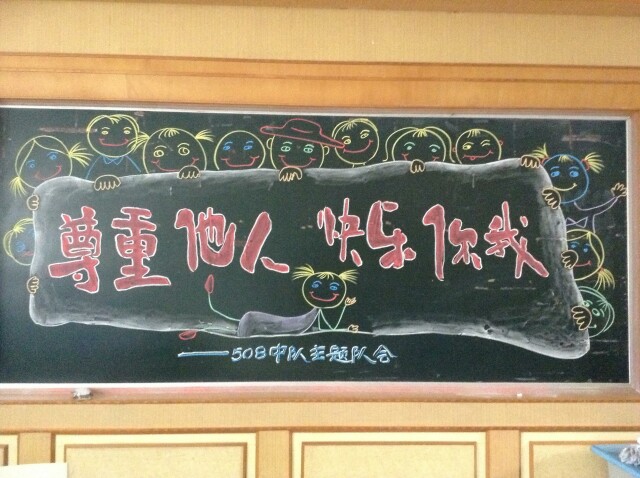 尊重他人 快乐你我
——508中队主题队会